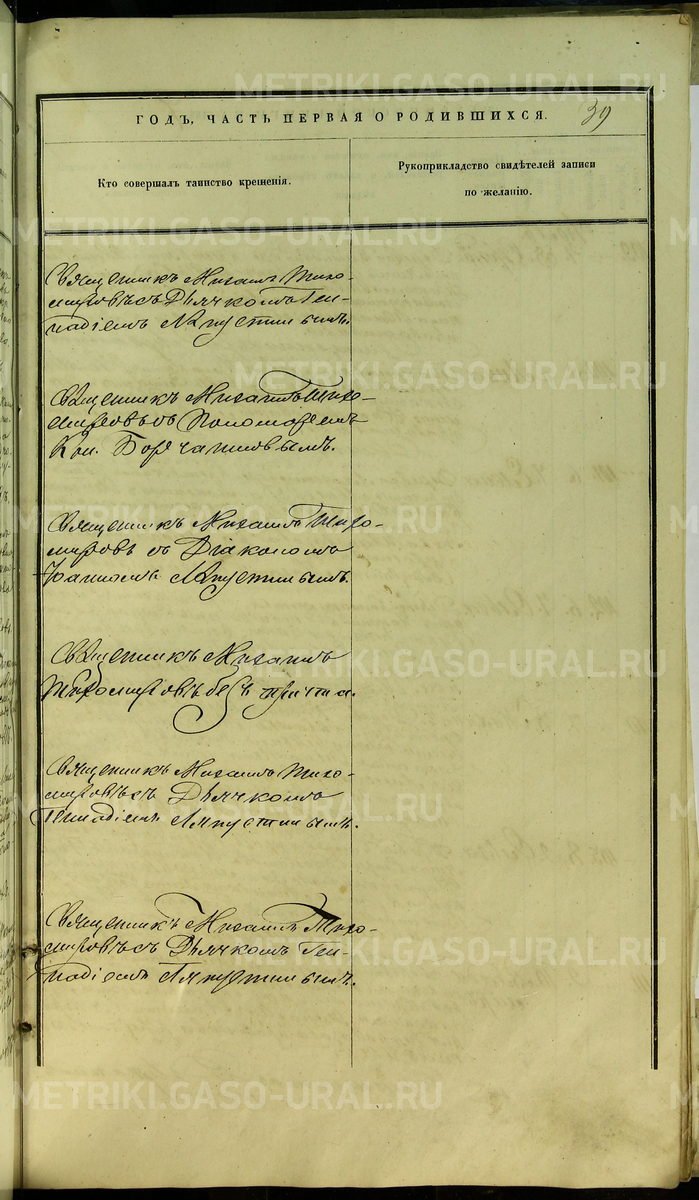 METRIKI.GASO-URAL.RU
ГОДЪ, ЧАСТЬ ПЕРВАЯ О РОДИВШИХСЯ.
39
Кто совершалъ таинство крещенія.
Рукоприкладство свидѣтелей записи
по желанію.
Священникъ Михаилъ Тихо-
мировъ съ Дьячкомъ Ген-
надіемъ Ляпустинымъ.
Священникъ Михаилъ Тихо-
мировъ съ Пономаремъ
Кон. Борчаниновымъ.
Священникъ Михаилъ Тихо-
мировъ съ Діакономъ
Іоанномъ Ляпустинымъ.
Священникъ Михаилъ
Тихомировъ безъ причта.
Священникъ Михаилъ Тихо-
мировъ съ Дьячкомъ
Геннадіемъ Ляпустинымъ.
Священникъ Михаилъ Тихо-
мировъ съ Дьячкомъ Ген-
надіемъ Ляпустинымъ.
METRIKI.GASO-URAL.RU